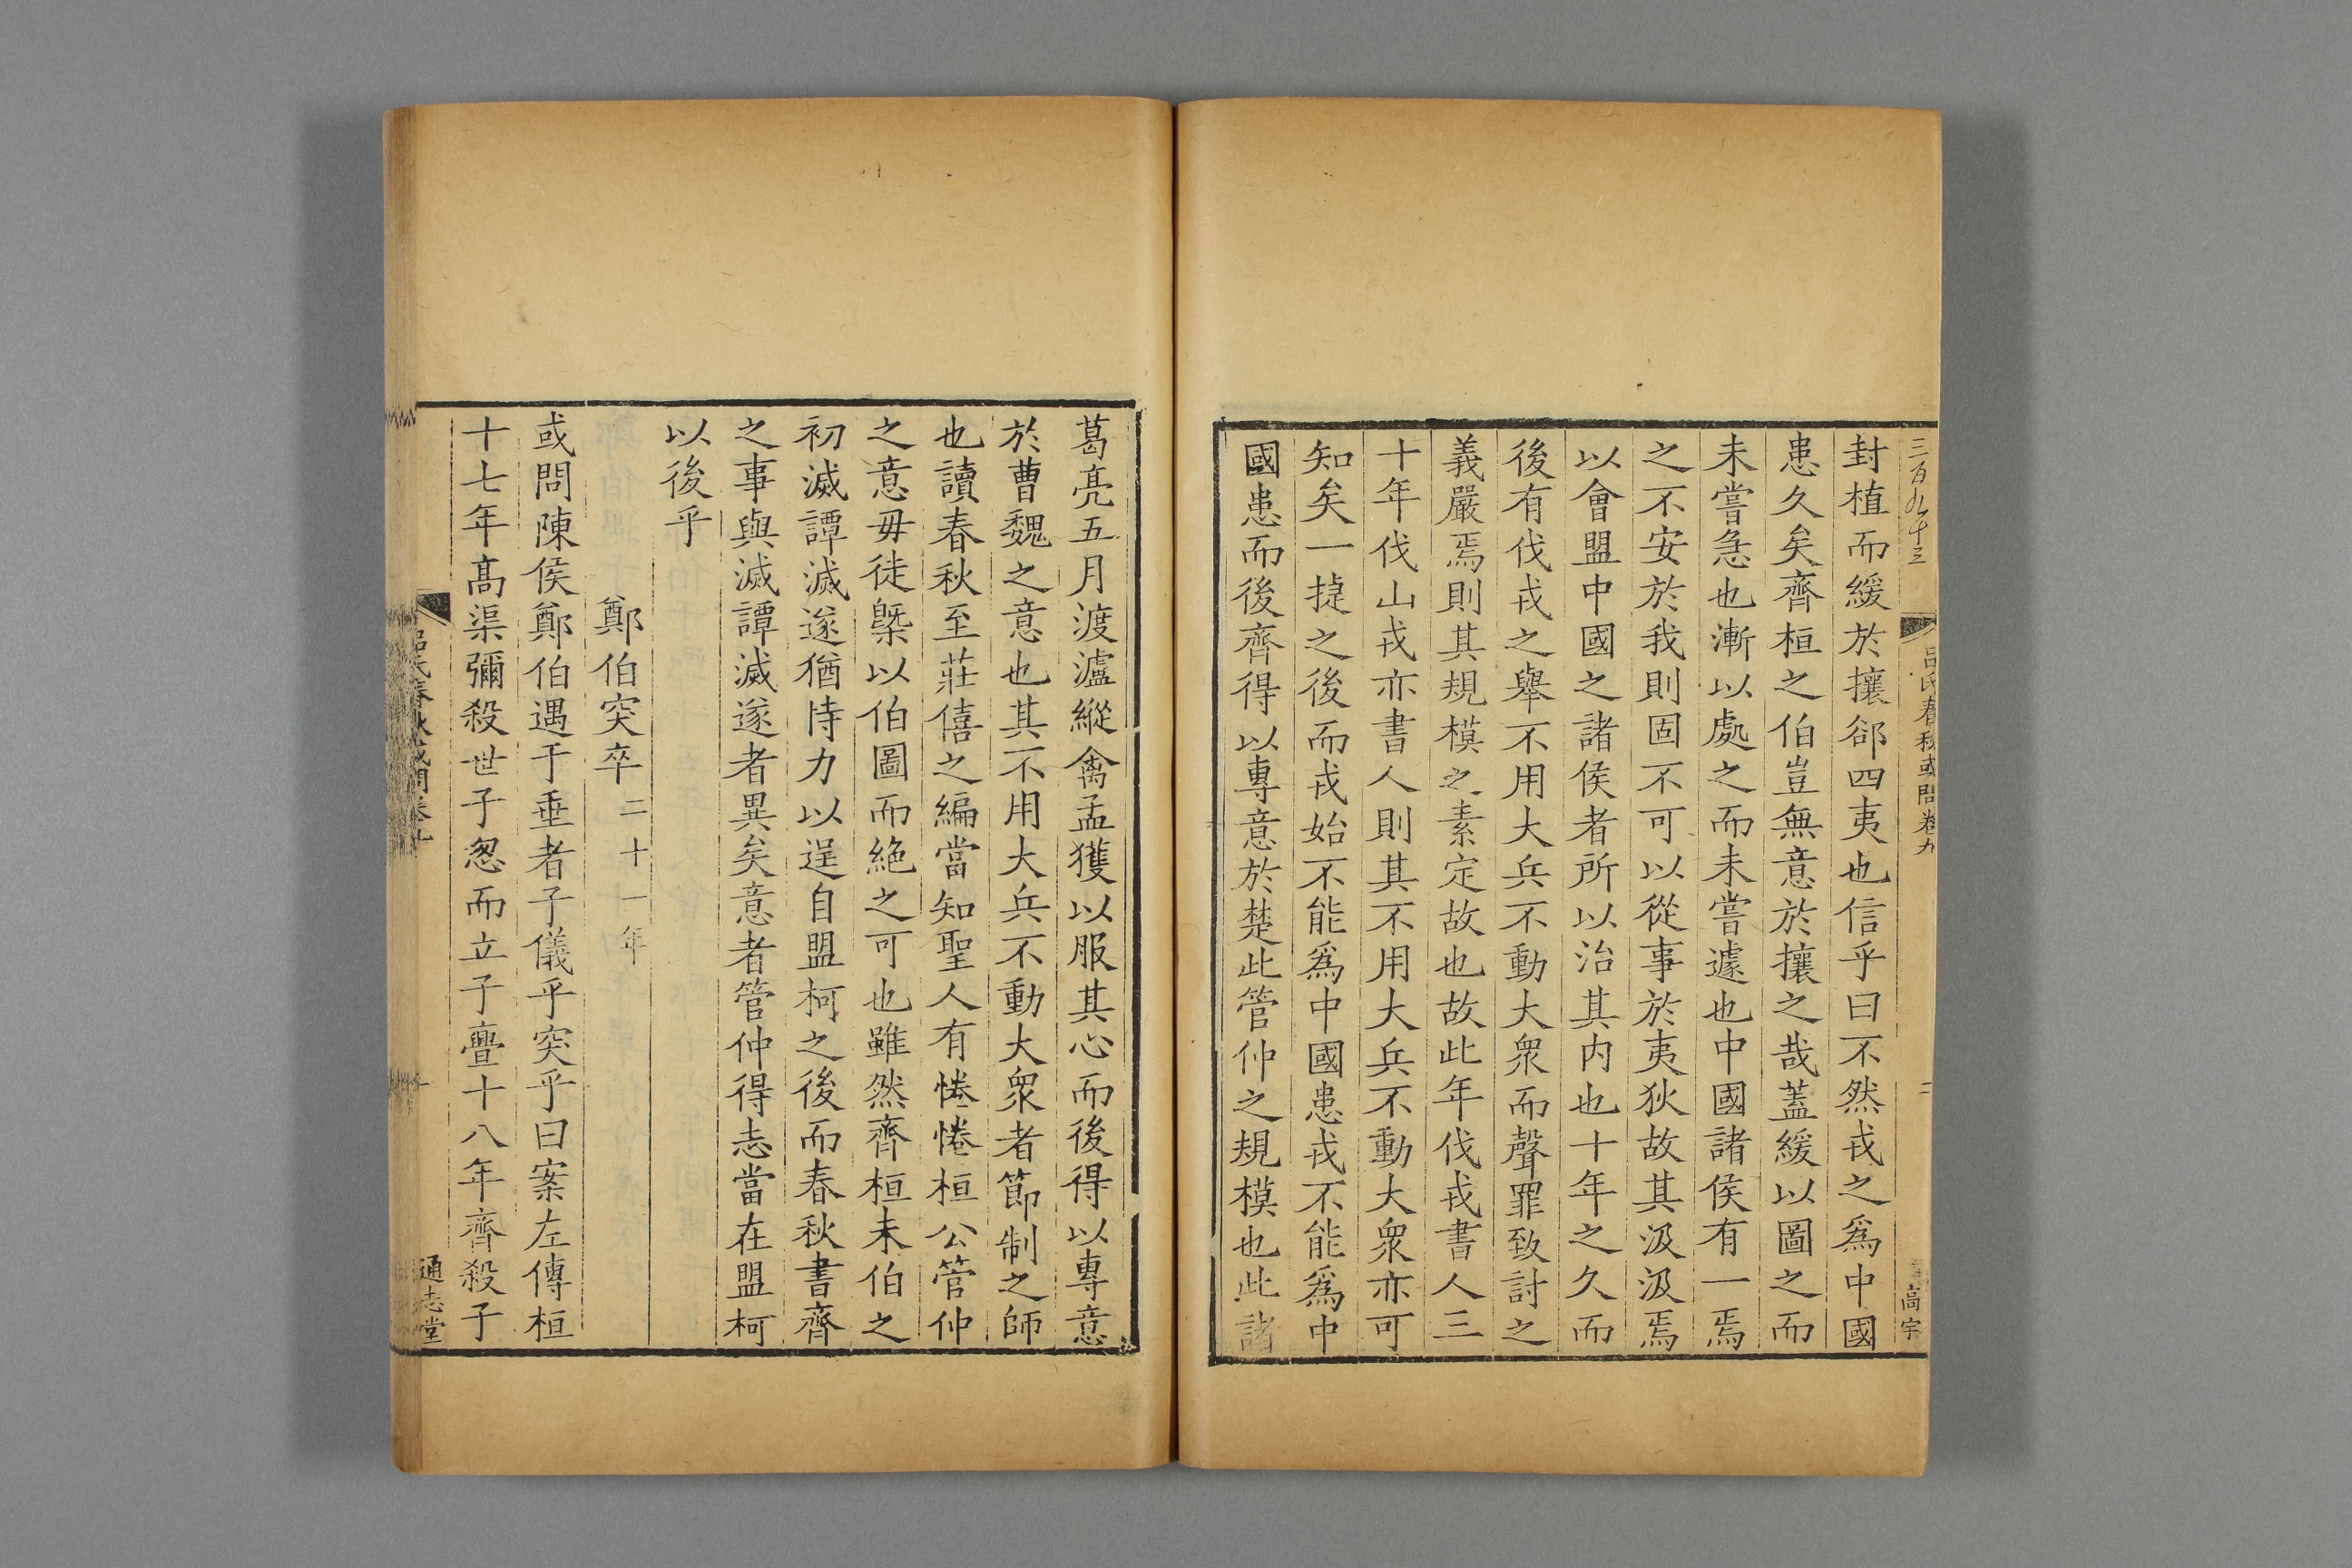 三百九十三
吕氏春秋或問卷九
二
高宇
封植而緩於攘郤四夷也信乎曰不然戎之爲中國
患久矣齊桓之伯豈無意於攘之哉蓋緩以圖之而
未嘗急也漸以處之而未嘗遽也中國諸侯有一焉
之不安於我則固不可以從事於夷狄故其汲汲焉
以會盟中國之諸侯者所以治其内也十年之久而
後有伐戎之舉不用大兵不動大衆而聲罪致討之
義嚴焉則其規模之素定故也故此年伐戎書人三
十年伐山戎亦書人則其不用大兵不動大衆亦可
知矣一㨗之後而戎始不能爲中國患戎不能爲中
國患而後齊得以專意於楚此管仲之規模也此諸
葛亮五月渡瀘縱禽孟獲以服其心而後得以專意
於曹魏之意也其不用大兵不動大衆者節制之師
也讀春秋至莊僖之編當知聖人有惓惓桓公管仲
之意毋徒槩以伯圖而絶之可也雖然齊桓未伯之
初滅譚滅遂猶恃力以逞自盟柯之後而春秋書齊
之事與滅譚滅遂者異矣意者管仲得志當在盟柯
以後乎
鄭伯突卒二十一年
或問陳侯鄭伯遇于垂者子儀乎突乎曰案左傳桓
十七年高渠彌殺世子忽而立子亹十八年齊殺子
吕氏春秋或問卷九
通志堂